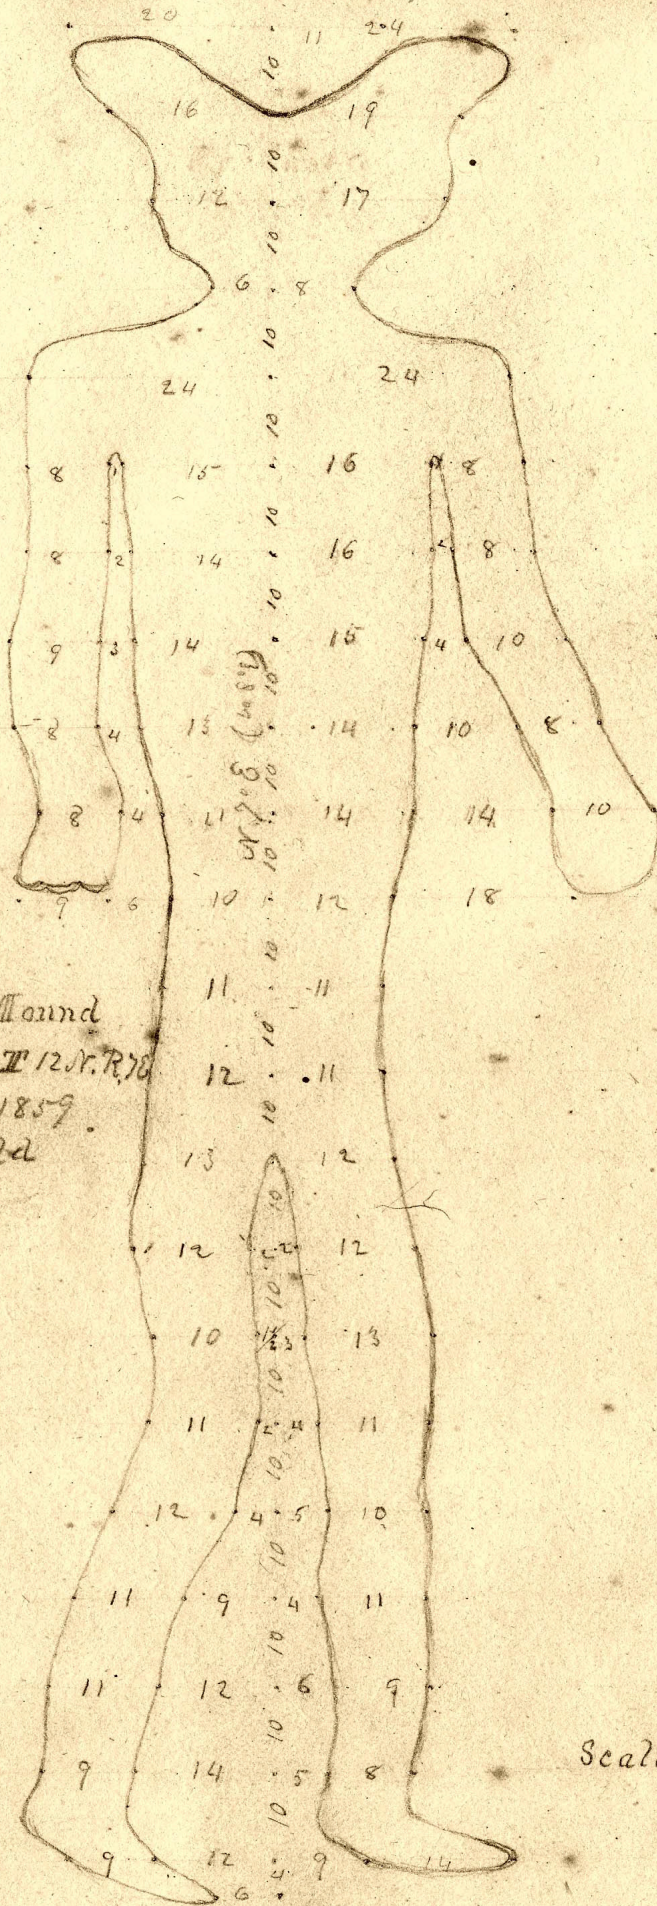 20 11 24
10
16 19
10
12 17
10
6 8
10
24 24
10
8 1 15 16 8
10
8 2 14 16 8
10
9 3 14 15 4 10
10
8 4 13 14 10 8
10
8 4 11 14 14 10
10
9 6 10 12 18
10
11 11
Mound
10
T 12 N. R. 7 E
12 11
1859
10
13 12
10
12 2 2 12
10
10 3 13
10
11 4 11
10
12 4 5 10
10
11 9 4 11
10
11 12 6 9
10
Scal
9 14 5 8
10
9 12 4 9 14
6